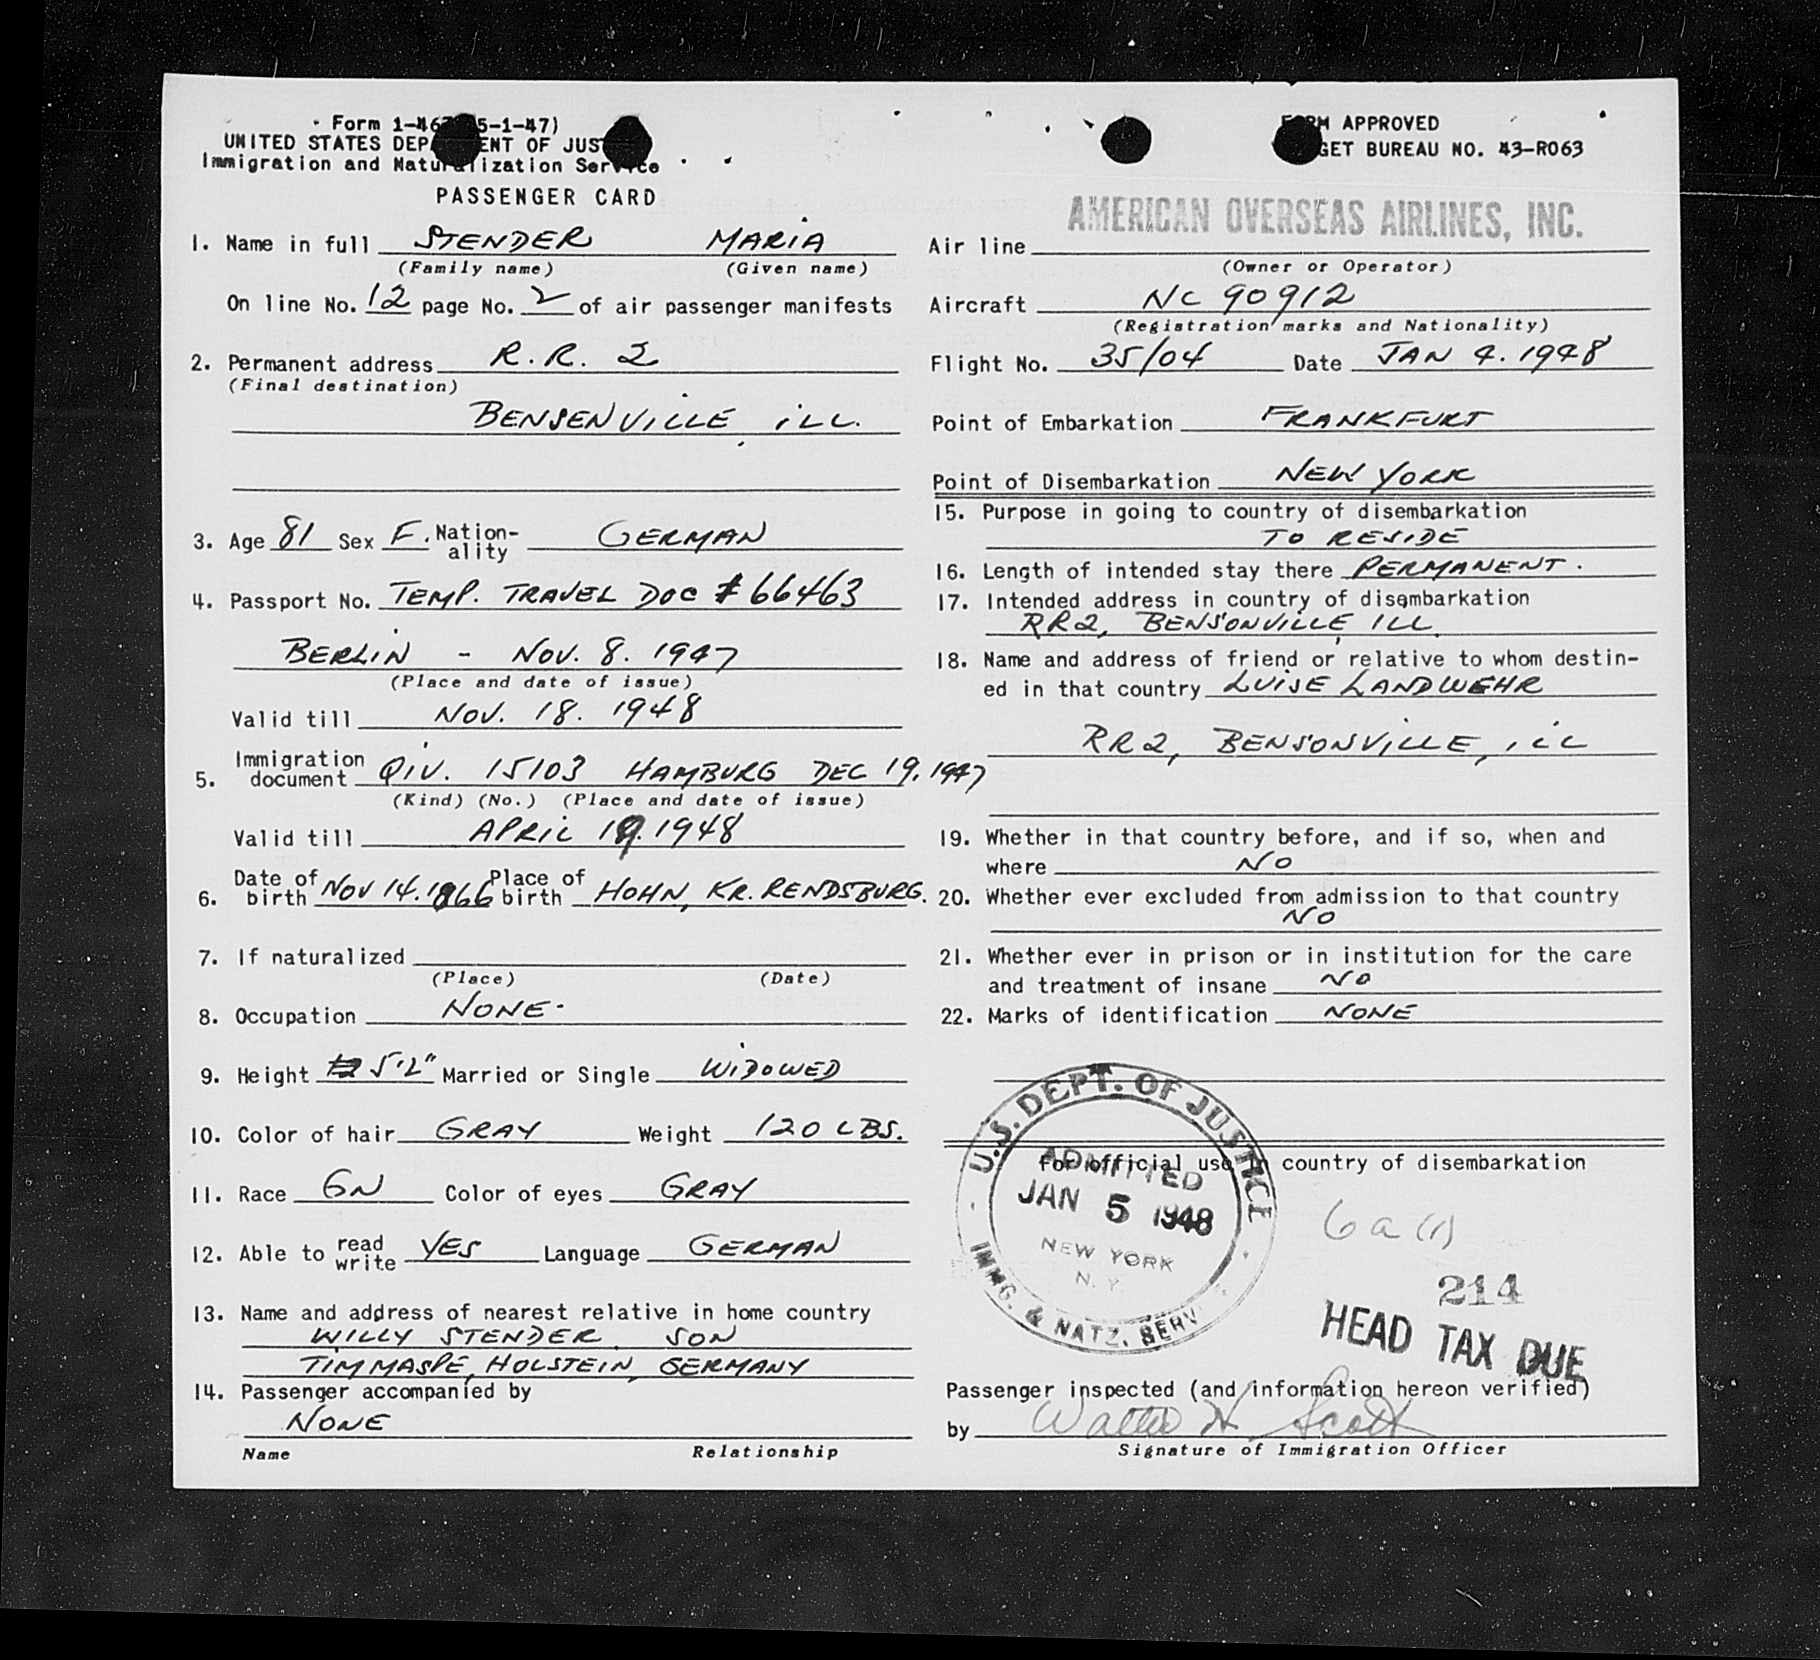 Form 1-46 5-1-47)
UNITED STATES DEP ENT OF JUS
Immigration and Naturalization Service
PASSENGER CARD
1. Name in full STENDER MARIA
(Family name) (Given name)
On line No. 12 page No. 2 of air passenger manifests
2. Permanent address R.R. 2
(Final destination)
BENSENVILLE, ILL.
3. Age 81 Sex F. Nation-ality GERMAN
4. Passport No. TEMP. TRAVEL DOC # 66463
BERLIN - NOV. 8. 1947
(Place and date of issue)
Valid till NOV. 18. 1948
5. Immigration document QIV. 15103 HAMBURG DEC 19. 1947
(Kind) (No.) (Place and date of issue)
Valid till APRIL 19. 1948
6. Date of birth NOV 14. 1866 Place of birth HOHN, KR. RENDSBURG.
7. If naturalized
(Place) (Date)
8. Occupation NONE-
9. Height 5'2" Married or Single WIDOWED
10. Color of hair GRAY Weight 120 LBS.
11. Race GN Color of eyes GRAY
12. Able to read write YES Language GERMAN
13. Name and address of nearest relative in home country
WILLY STENDER SON
TIMMASPE, HOLSTEIN, GERMANY
14. Passenger accompanied by
NONE
Name Relationship
FORM APPROVED
GET BUREAU NO. 43-R063
AMERICAN OVERSEAS AIRLINES, INC.
Air line
(Owner or Operator)
Aircraft NC 90912
(Registration marks and Nationality)
Flight No. 35/04 Date JAN 4. 1948
Point of Embarkation FRANKFURT
Point of Disembarkation NEW YORK
15. Purpose in going to country of disembarkation
TO RESIDE
16. Length of intended stay there PERMANENT.
17. Intended address in country of disembarkation
RR2, BENSONVILLE, ILL.
18. Name and address of friend or relative to whom destin-
ed in that country LUISE LANDWEHR
RR2, BENSONVILLE, ILL
19. Whether in that country before, and if so, when and
where NO
20. Whether ever excluded from admission to that country
NO
21. Whether ever in prison or in institution for the care
and treatment of insane NO
22. Marks of identification NONE
For official use in country of disembarkation
U.S. DEPT. OF JUSTICE
ADMITTED
JAN 5 1948
NEW YORK
N. Y.
IMMG. & NATZ. SERV.
6a(1)
214
HEAD TAX DUE
Passenger inspected (and information hereon verified)
by Walter H Scott
Signature of Immigration Officer